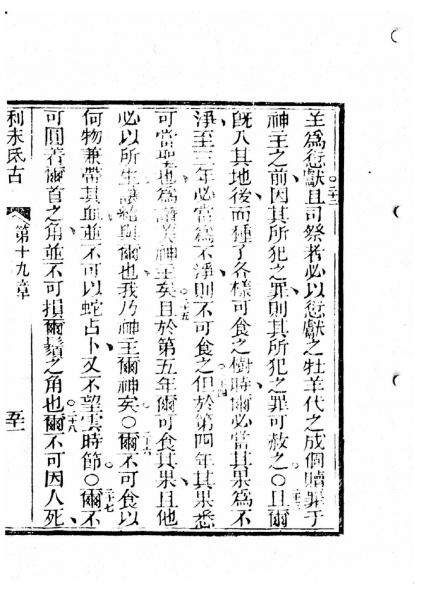 羊爲愆獻且司祭者必以愆獻之牡羊代之成個贖罪于
神主之前因其所犯之罪則其所犯之罪可赦之○且爾
旣入其地後而種了各樣可食之樹時爾必當其果爲不
淨至三年必當爲不淨則不可食之但於第四年其果悉
可當聖也爲讚美神主矣且於第五年爾可食其果且他
必以所生讓給與爾也我乃神主爾神矣○爾不可食以
何物兼帶其血並不可以蛇占卜又不望雲時節○爾不
可圓薙爾首之角並不可損爾鬚之角也爾不可因人死
利未氏古 第十九章 五十一